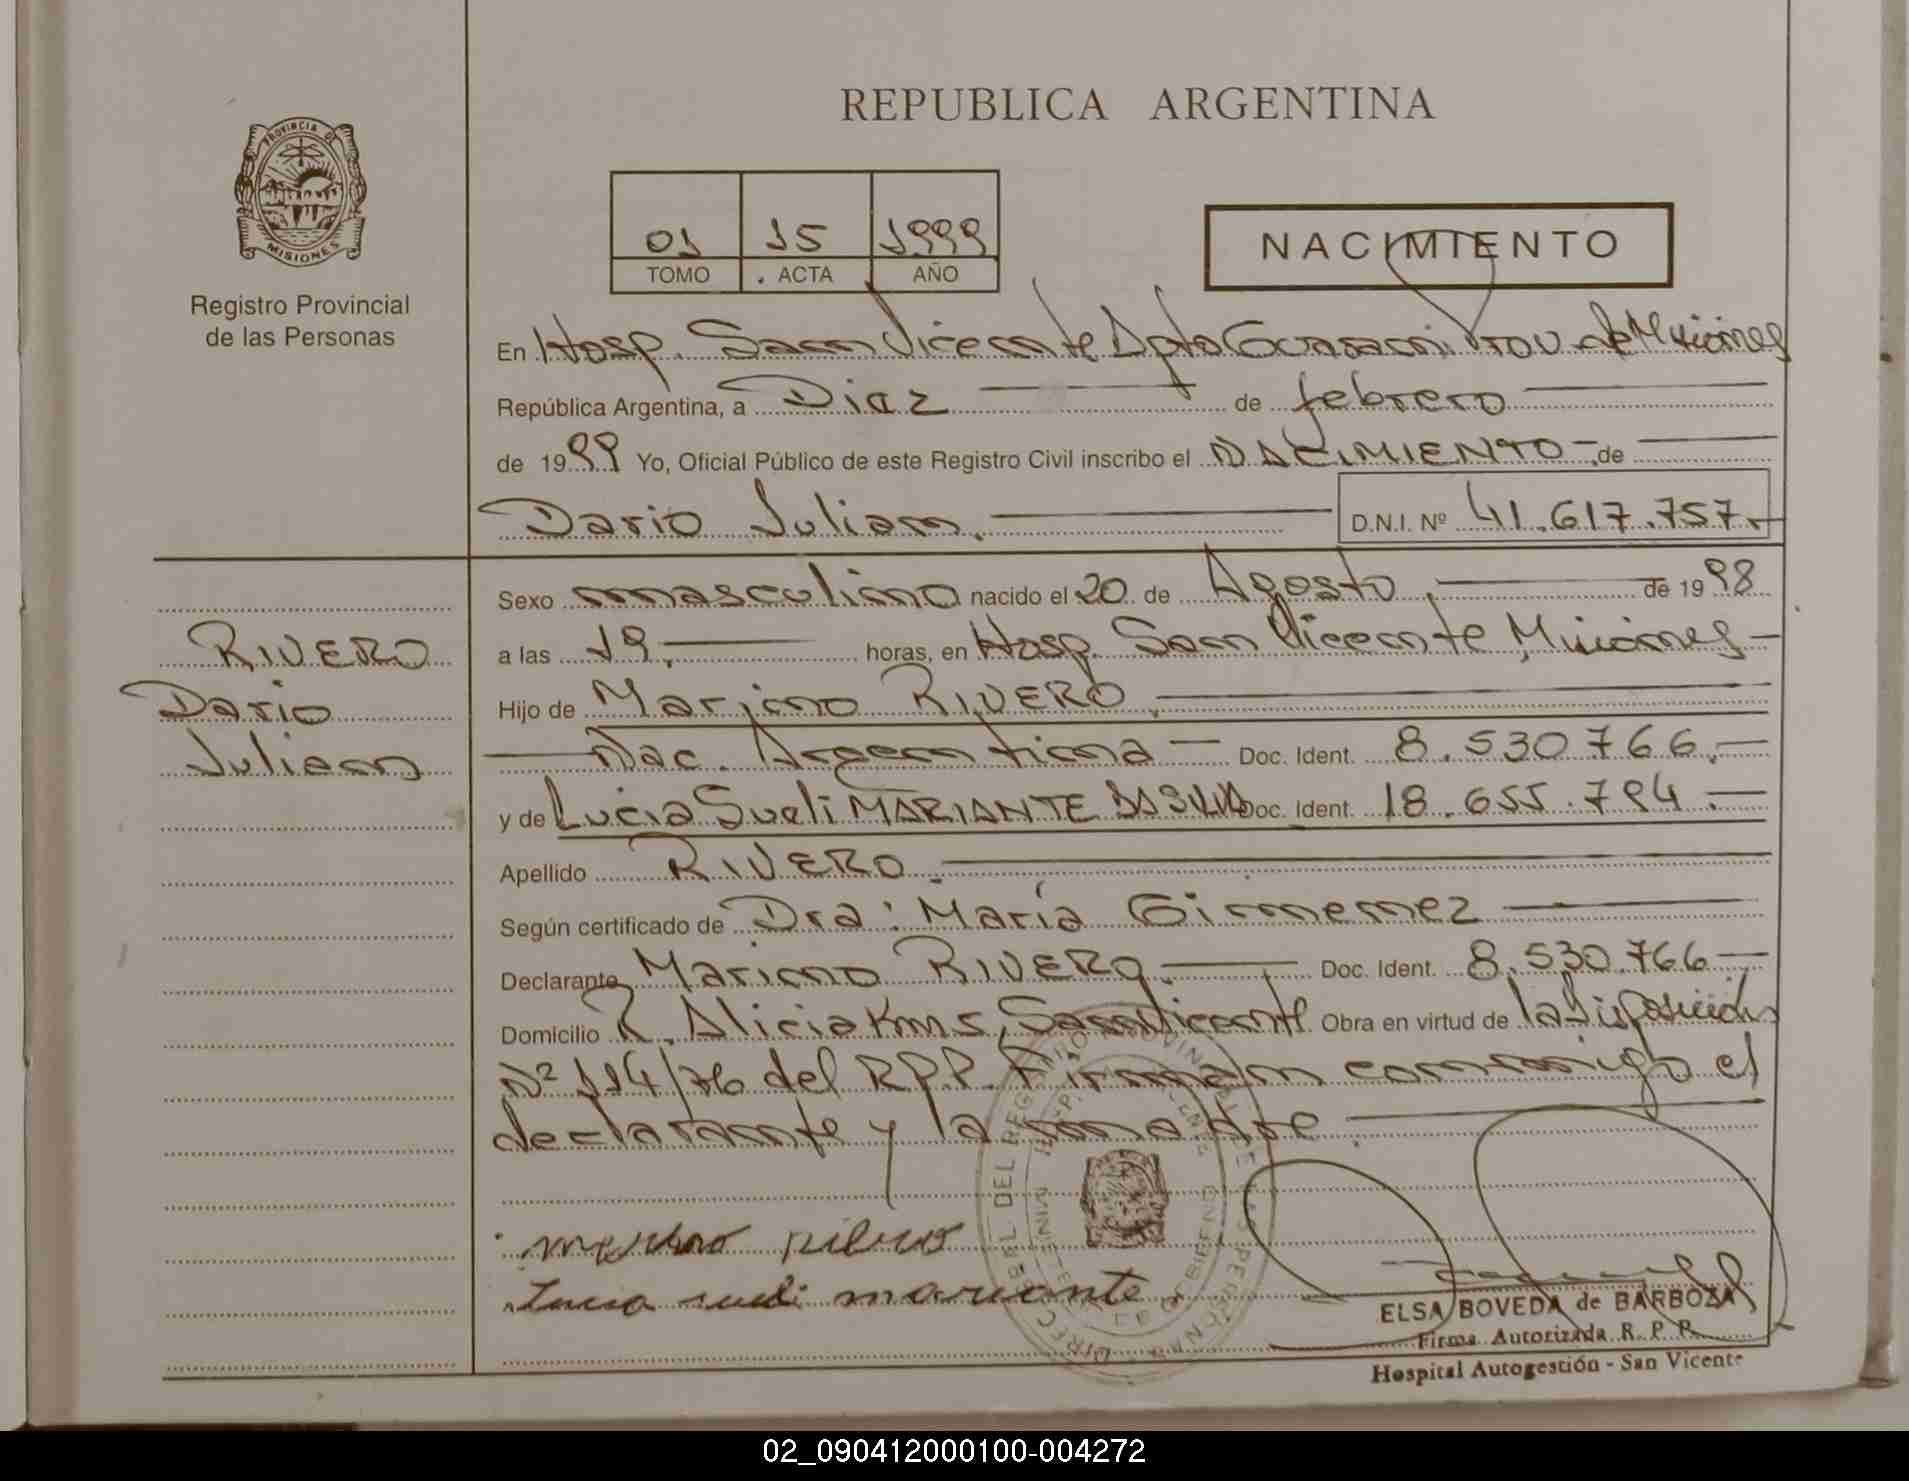 REPUBLICA ARGENTINA
PROVINCIA DE
MISIONES
Registro Provincial
de las Personas
01 15 1999
TOMO ACTA AÑO
NACIMIENTO
En Hosp. San Vicente Dpto Guarani Prov. de Misiones
República Argentina, a Diez de febrero
de 1999 Yo, Oficial Público de este Registro Civil inscribo el NACIMIENTO de
Dario Julian. D.N.I. Nº 41.617.757.-
Sexo masculino nacido el 20 de Agosto de 1998
a las 19. horas, en Hosp. San Vicente, Misiones
RIVERO
Hijo de Marino RIVERO.
Dario
Nac. Argentina Doc. Ident. 8.530.766.
Julian
y de Lucia Sueli MARIANTE DA SILVA Doc. Ident. 18.655.794.
Apellido RIVERO.
Según certificado de Dra: María Gimenez
Declarante Marino RIVERO. Doc. Ident. 8.530.766
Domicilio P. Alicia Km 5, San Vicente Obra en virtud de la Disposición
Nº 114/76 del RPP. Firman conmigo el
declarante y la madre.
Lucia sueli mariante.
ELSA BOVEDA de BARBOZA
Firma Autorizada R. P. P.
Hospital Autogestión - San Vicente
02_090412000100-004272